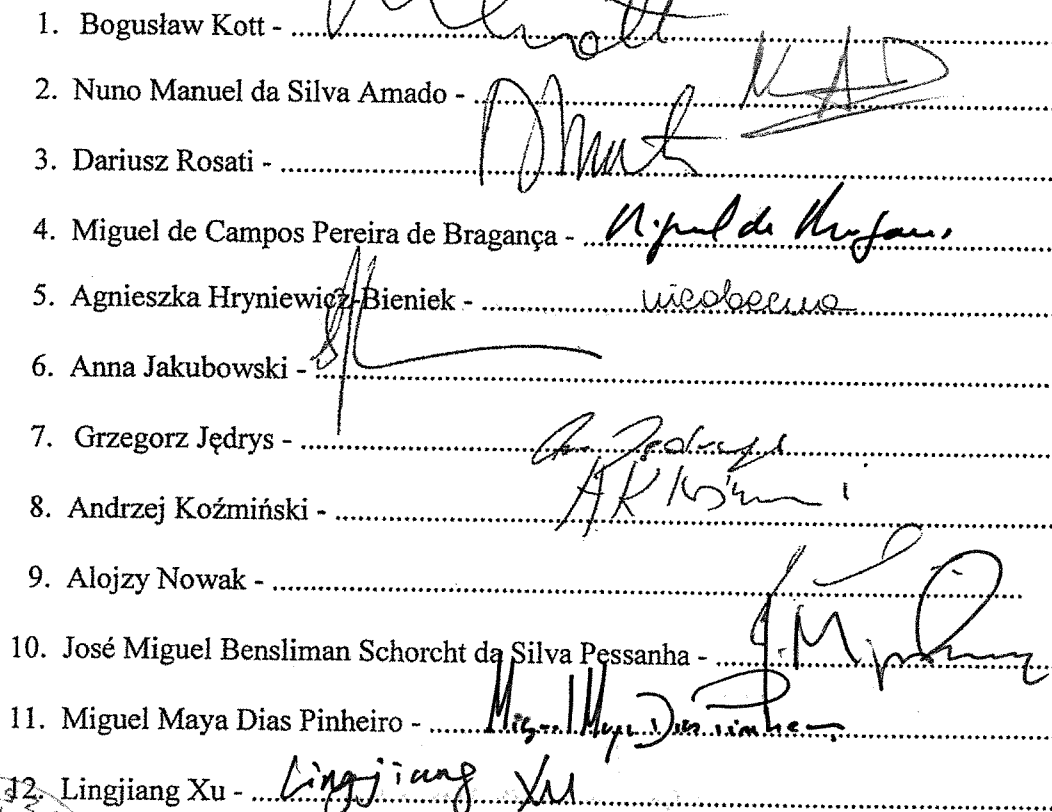 1. Bogusław Kott - .......... Kott
2. Nuno Manuel da Silva Amado - .......... NAD
3. Dariusz Rosati - ..........
4. Miguel de Campos Pereira de Bragança - .......... Miguel de Bragança
5. Agnieszka Hryniewicz-Bieniek - .......... nieobecna
6. Anna Jakubowski - ..........
7. Grzegorz Jędrys - ..........
8. Andrzej Koźmiński - .......... AK Koźmiński
9. Alojzy Nowak - ..........
10. José Miguel Bensliman Schorcht da Silva Pessanha - ..........
11. Miguel Maya Dias Pinheiro - .......... Miguel Maya Dias Pinheiro
12. Lingjiang Xu - .......... Lingjiang Xu